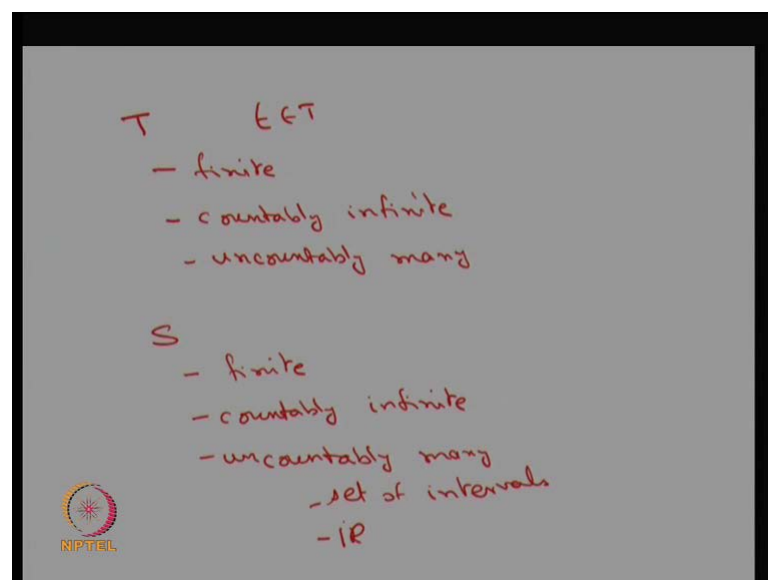 T t ∈ T
- finite
- countably infinite
- uncountably many
S
- finite
- countably infinite
- uncountably many
- set of intervals
- IR
NPTEL